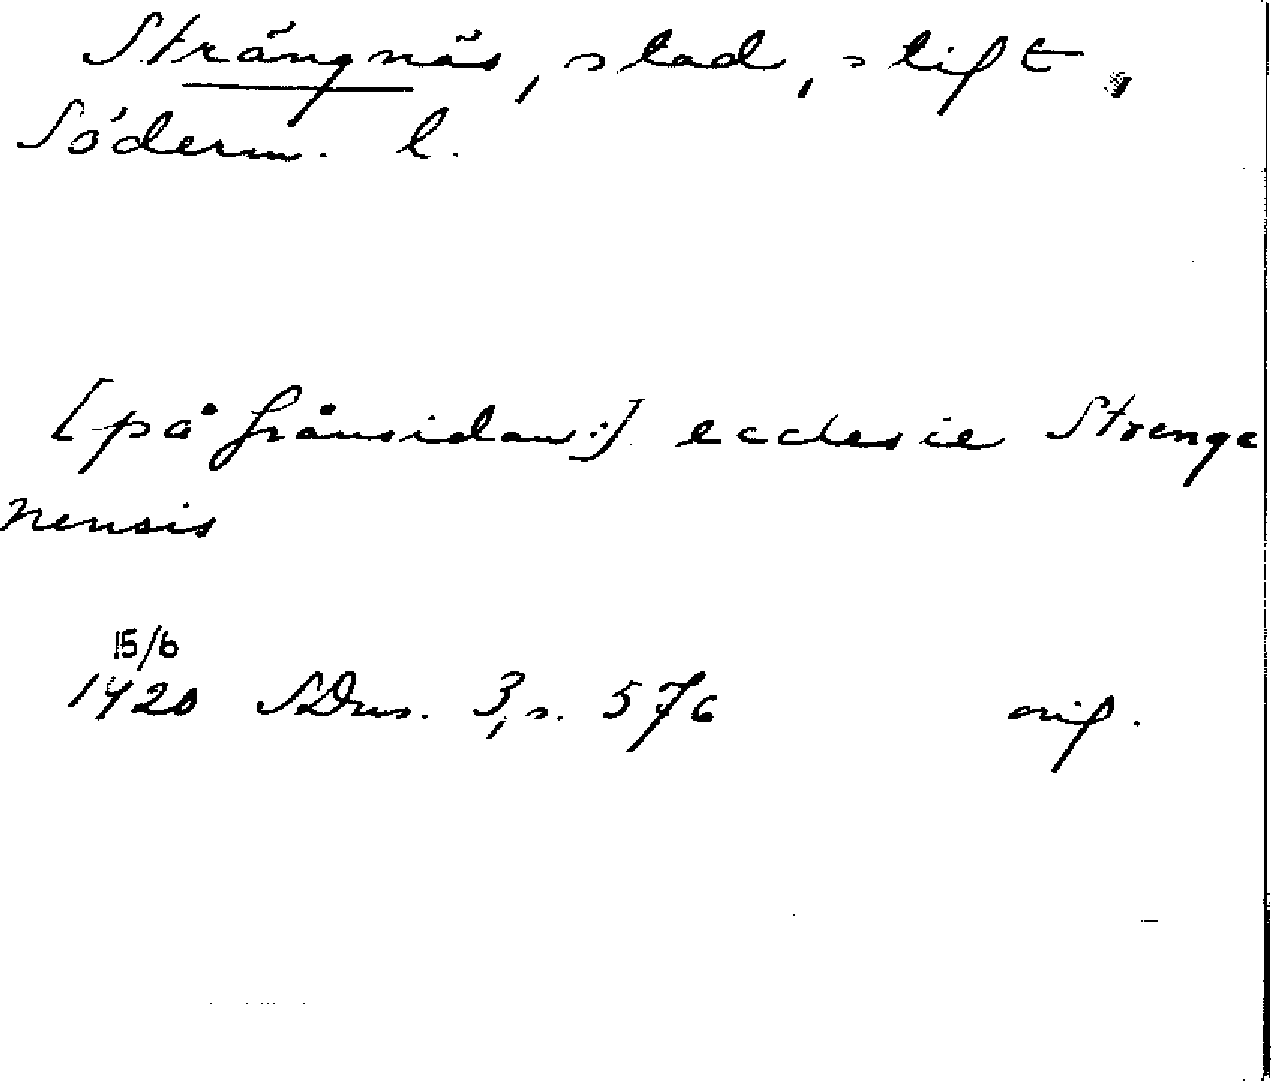 Strängnäs, stad, stift,
Söderm. l.
[på frånsidan:] ecclesie Strenge
nensis
15/6
1420 SDns. 3, s. 576 orig.